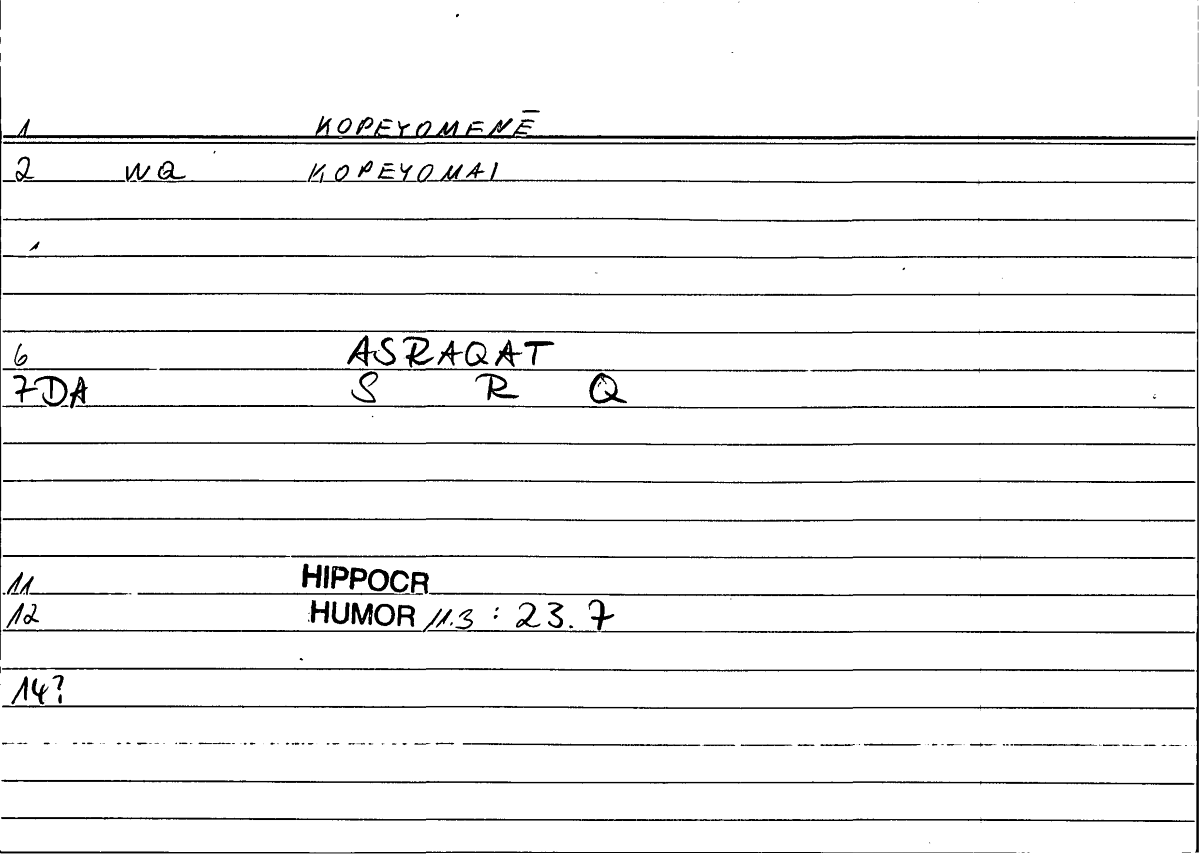 1 KOPEYOMENĒ
2 WQ KOPEYOMAI
1
6 ASRAQAT
7DA S R Q
11 HIPPOCR
12 HUMOR 11.3 : 23.7
14?